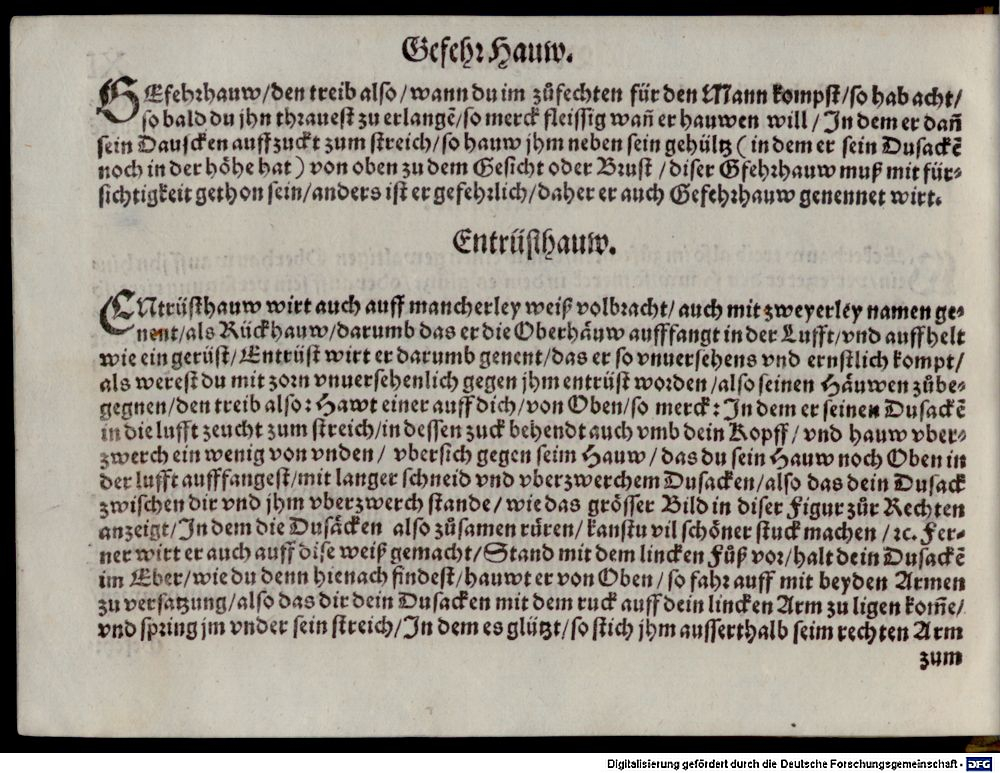 Gefehr Hauw.
GEfehrhauw/den treib also/wann du im zůfechten für den Mann kompst/so hab acht/
so bald du jhn thrauest zu erlangẽ/so merck fleissig wañ er hauwen will/In dem er dañ
sein Dauscken auffzuckt zum streich/so hauw jhm neben sein gehültz (in dem er sein Dusackẽ
noch in der höhe hat) von oben zu dem Gesicht oder Brust/diser Gfehrhauw muß mit für-
sichtigkeit gethon sein/anders ist er gefehrlich/daher er auch Gefehrhauw genennet wirt.
Entrüsthauw.
ENtrüsthauw wirt auch auff mancherley weiß volbracht/auch mit zweyerley namen ge-
nent/als Rückhauw/darumb das er die Oberhäuw aufffangt in der Lufft/vnd auffhelt
wie ein gerüst/Entrüst wirt er darumb genent/das er so vnuersehens vnd ernstlich kompt/
als werest du mit zorn vnuersehenlich gegen jhm entrüst worden/also seinen Häuwen zůbe-
gegnen/den treib also: Hawt einer auff dich/von Oben/so merck: In dem er seinen Dusackẽ
in die lufft zeucht zum streich/in dessen zuck behendt auch vmb dein Kopff/vnd hauw vber-
zwerch ein wenig von vnden/vbersich gegen seim Hauw/das du sein Hauw noch Oben in
der lufft aufffangest/mit langer schneid vnd vberzwerchem Dusacken/also das dein Dusack
zwischen dir vnd jhm vberzwerch stande/wie das grösser Bild in diser Figur zůr Rechten
anzeigt/In dem die Dusäcken also zůsamen rüren/kanstu vil schöner stuck machen/ꝛc. Fer-
ner wirt er auch auff dise weiß gemacht/Stand mit dem lincken Fůß vor/halt dein Dusackẽ
im Eber/wie du denn hienach findest/hauwt er von Oben/so fahr auff mit beyden Armen
zu versatzung/also das dir dein Dusacken mit dem ruck auff dein lincken Arm zu ligen kom̃e/
vnd spring jm vnder sein streich/In dem es glützt/so stich jhm ausserthalb seim rechten Arm
zum
Digitalisierung gefördert durch die Deutsche Forschungsgemeinschaft - DFG